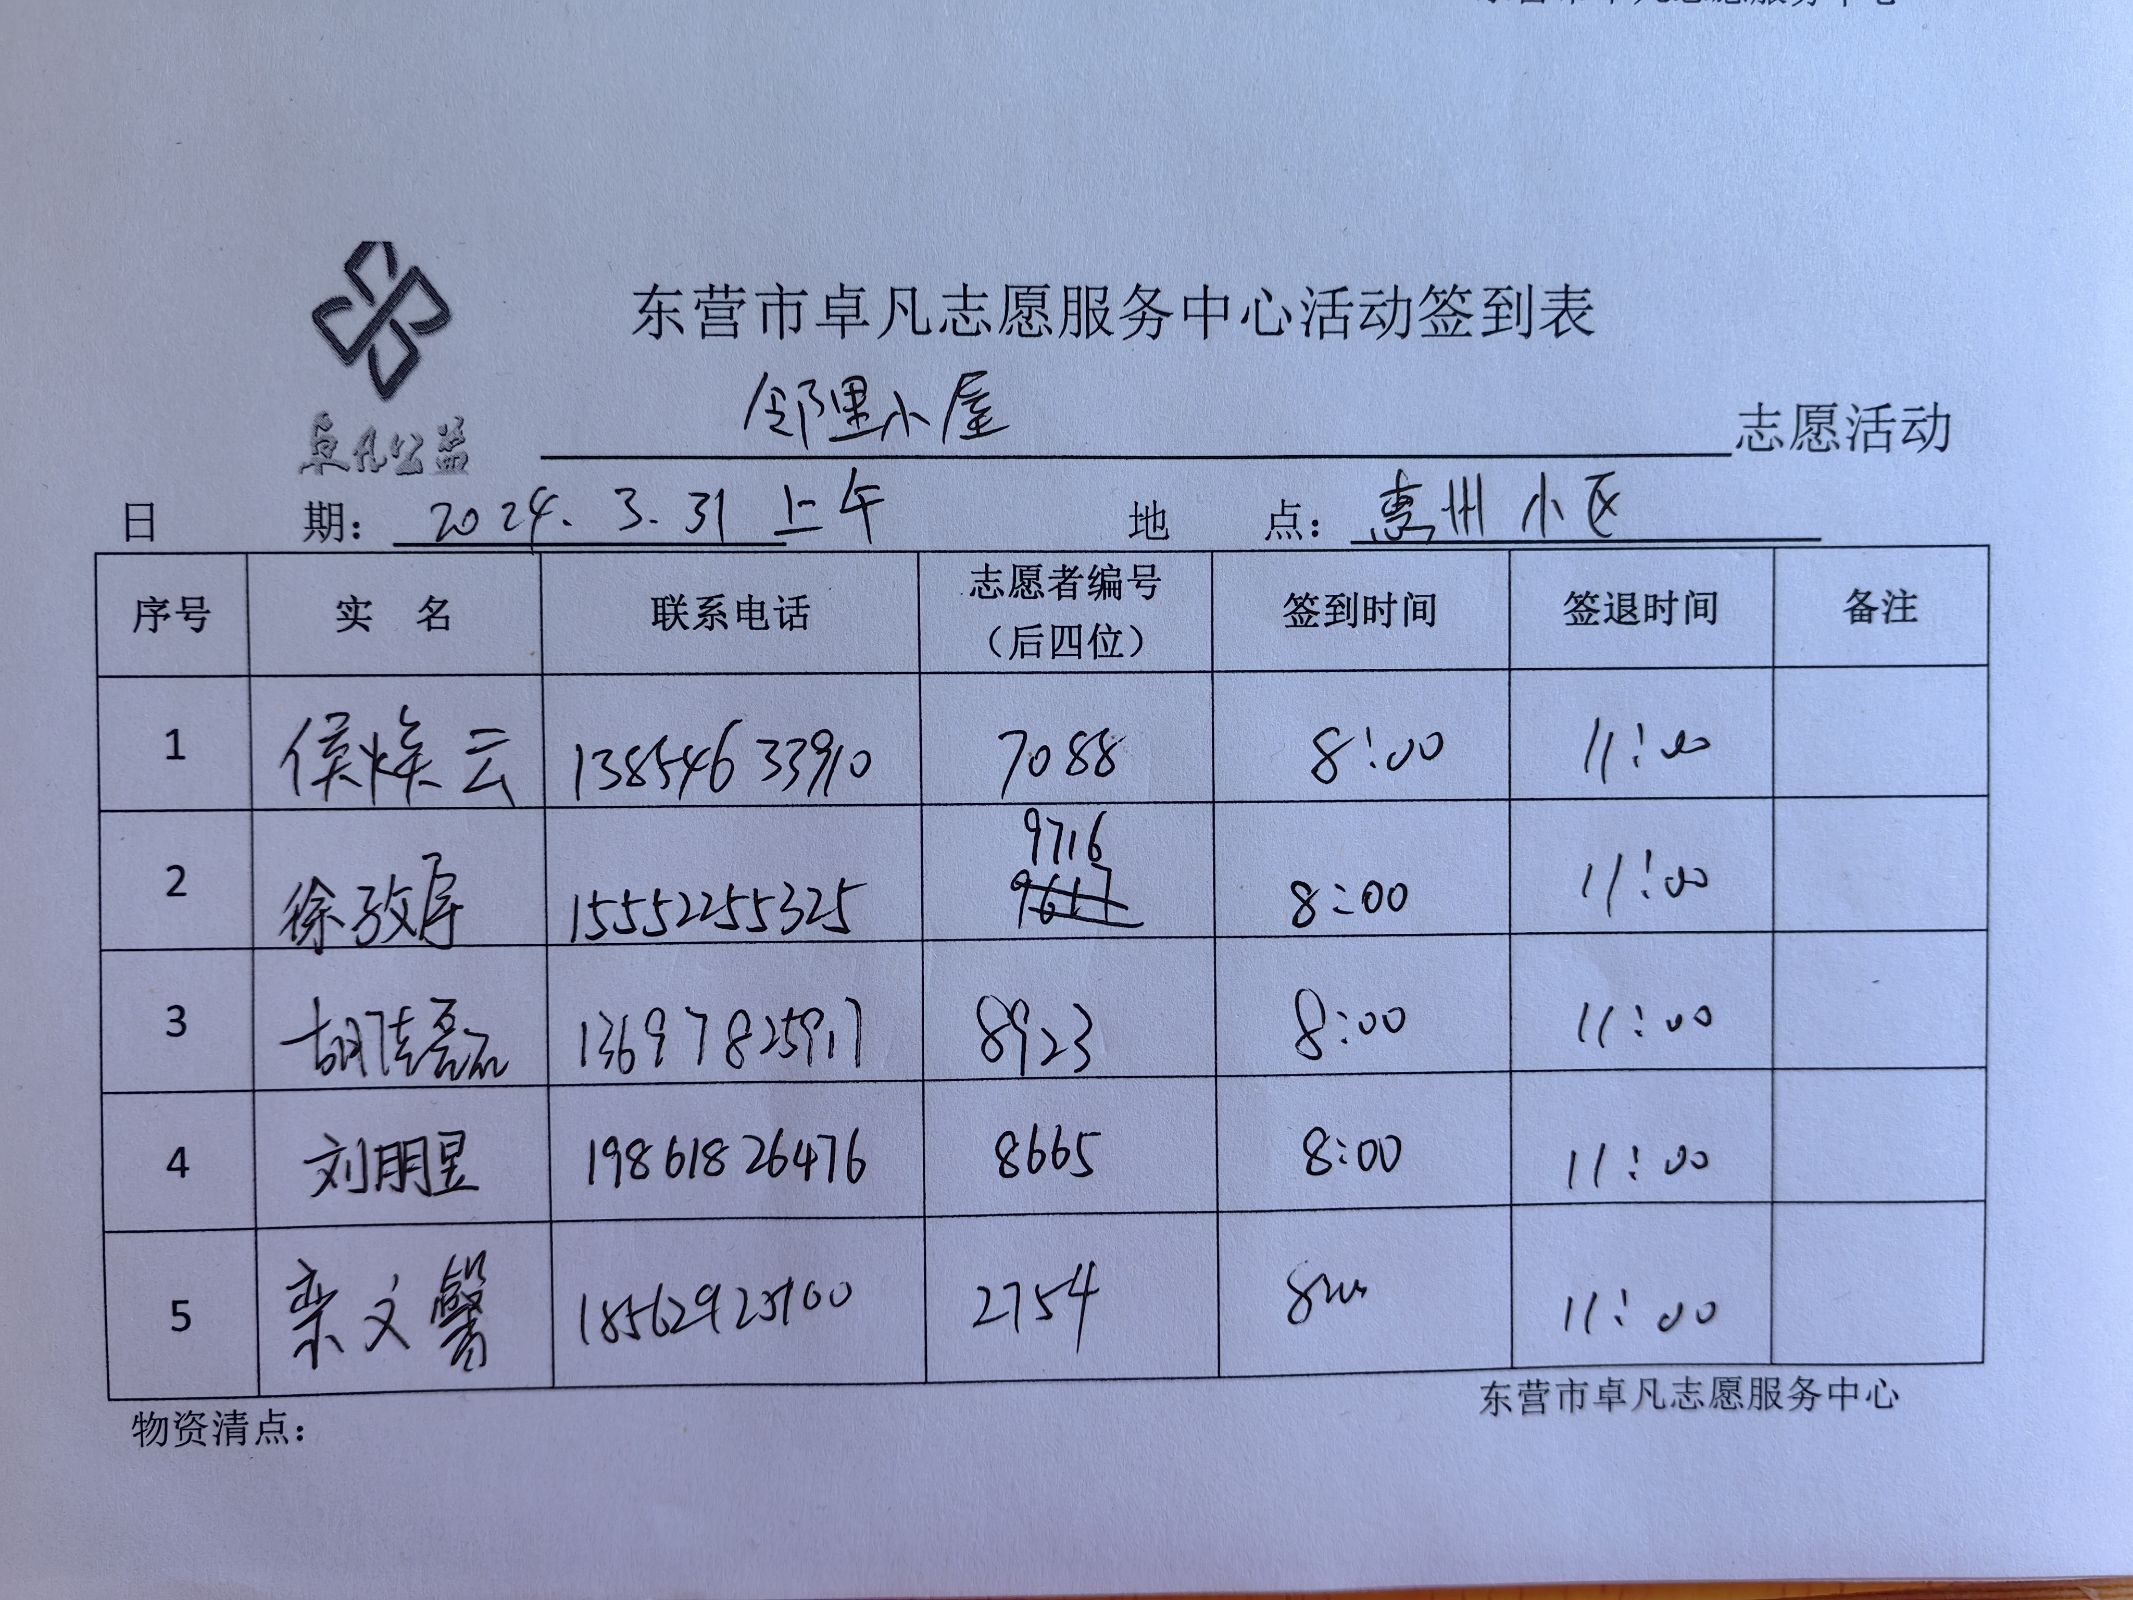 东营市卓凡志愿服务中心
东营市卓凡志愿服务中心活动签到表
卓凡公益
邻里小屋 志愿活动
日 期： 2024.3.31 上午 地 点： 惠州小区
序号 实 名 联系电话 志愿者编号（后四位） 签到时间 签退时间 备注
1 侯焕云 13854633910 7088 8:00 11:00
2 徐 15552255325 9716 8:00 11:00
3 胡磊 13697825917 8923 8:00 11:00
4 刘朋昱 19861826476 8665 8:00 11:00
5 栾文馨 2754 11:00
东营市卓凡志愿服务中心
物资清点：